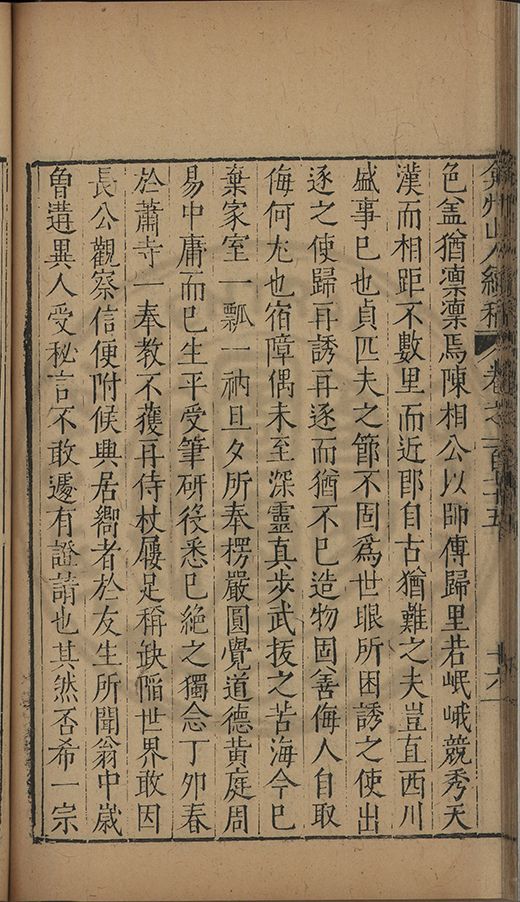 弇州山人續稿 卷之一百七十五 十六
色盖猶凛凛焉陳相公以師傅歸里若岷峨競秀天
漢而相距不數里而近郎自古猶難之夫豈直西川
盛事已也貞匹夫之節不固爲世眼所困誘之使出
逐之使歸再誘再逐而猶不已造物固善侮人自取
侮何尤也宿障偶未至深靈真步武抜之苦海今已
棄家室一瓢一衲旦夕所奉楞嚴圓覺道德黄庭周
易中庸而已生平受筆研役悉已絶之獨念丁卯春
於蕭寺一奉教不獲再侍杖屨足稱缺陷世界敢因
長公觀察信便附候興居嚮者於友生所聞翁中嵗
魯遘異人受秘言不敢遽有證請也其然否希一宗